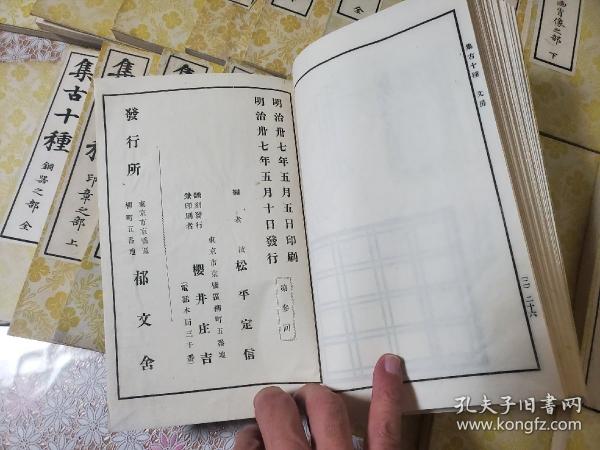 明治卅七年五月五日印刷
明治卅七年五月十日發行
第參回
編者 故 松平定信
飜刻發行
兼印刷者
東京市京橋區桶町五番地
櫻井庄吉
(電話本局三十番)
發行所
東京市京橋區
桶町五番地
郁文舍
集古十種 文房
(二) 二十六
集古十種 銅器之部 全
集
印章之部 上
画肖像之部 下
孔夫子旧书网
www.kongfz.com